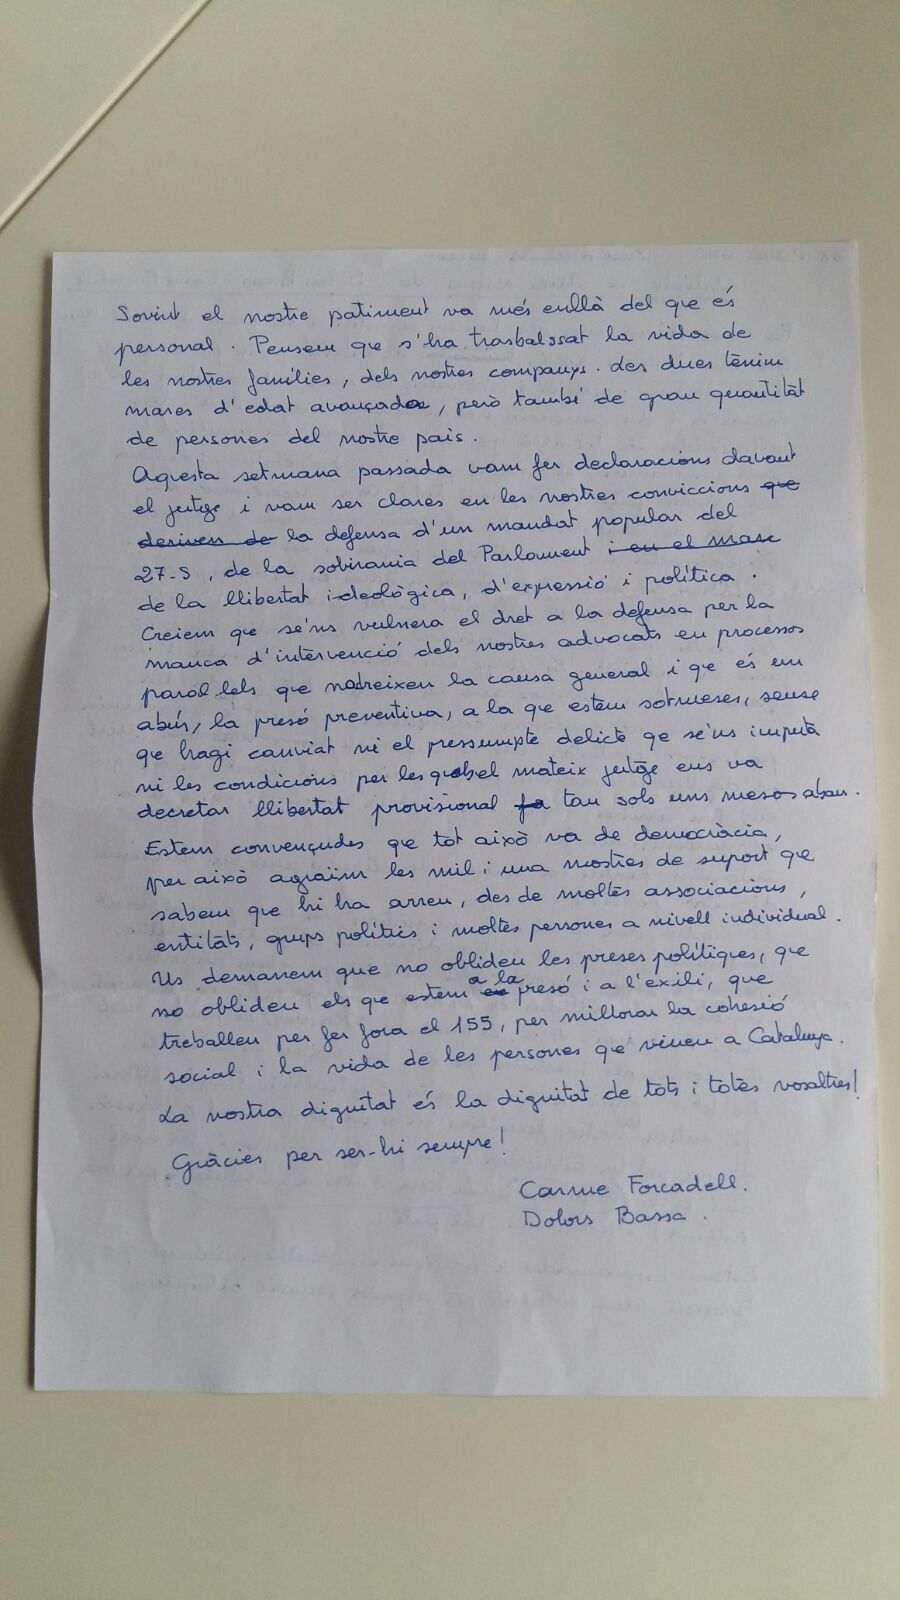 Sovint el nostre patiment va més enllà del que és
personal. Pensem que s'ha trasbalssat la vida de
les nostres famílies, dels nostres companys. Les dues tenim
mares d'edat avançada, però també de gran quantitat
de persones del nostre país.
Aquesta setmana passada vam fer declaracions davant
el jutge i vam ser clares en les nostres conviccions que
deriven de la defensa d'un mandat popular del
27-S, de la sobirania del Parlament i en el marc
de la llibertat ideològica, d'expressió i política.
Creiem que se'ns vulnera el dret a la defensa per la
manca d'intervenció dels nostres advocats en processos
paral·lels que nodreixen la causa general i que és un
abús, la presó preventiva, a la que estem sotmeses, sense
que hagi canviat ni el pressumpte delicte qe se'ns imputa
ni les condicions per les quals el mateix jutge ens va
decretar llibertat provisional tan sols uns mesos abans.
Estem convençudes que tot això va de democràcia,
per això agraïm les mil i una mostres de suport que
sabem que hi ha arreu, des de moltes associacions,
entitats, grups polítics i moltes persones a nivell individual.
Us demanem que no oblideu les preses polítiques, que
no oblideu els que estem en a la presó i a l'exili, que
treballeu per fer fora el 155, per millorar la cohesió
social i la vida de les persones que viuen a Catalunya.
La nostra dignitat és la dignitat de tots i totes vosaltres!
Gràcies per ser-hi sempre!
Carme Forcadell.
Dolors Bassa.